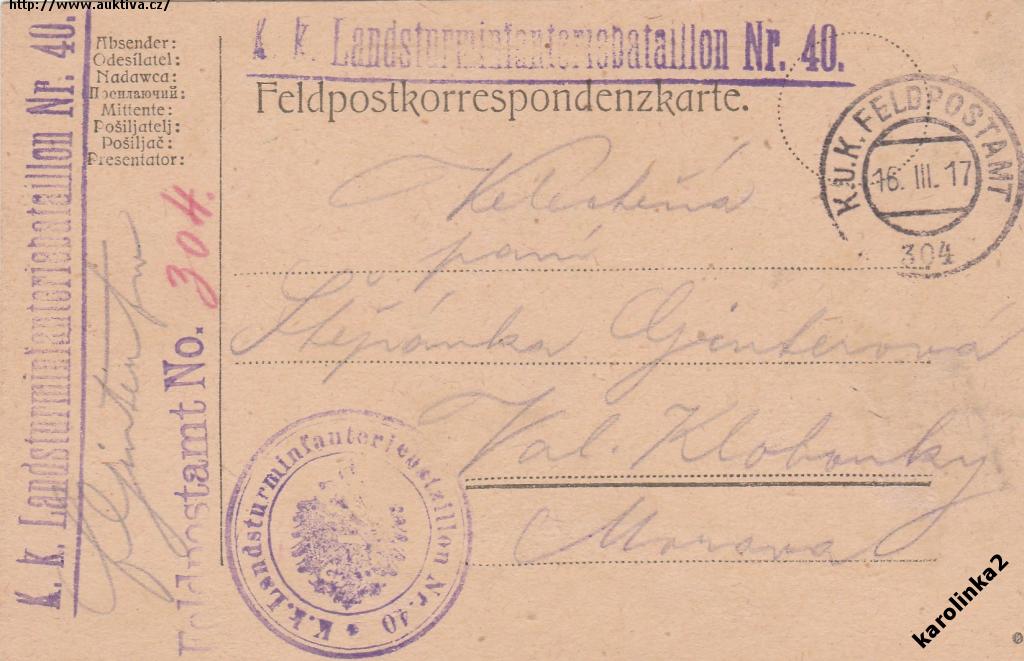 http://www.auktiva.cz/
K. k. Landsturminfanteriebataillon Nr. 40.
K. k. Landsturminfanteriebataillon Nr. 40.
Absender:
Odesílatel:
Nadawca:
Посилаючий:
Mittente:
Pošiljatelj:
Pošiljač:
Presentator:
Feldpostkorrespondenzkarte.
K.U.K. FELDPOSTAMT
16. III. 17
304
Feldpostamt No. 304.
paní
Štěpánka Ginterová
Val. Klobouky
Morava
K.k. Landsturminfanteriebataillon Nr. 40
karolinka2